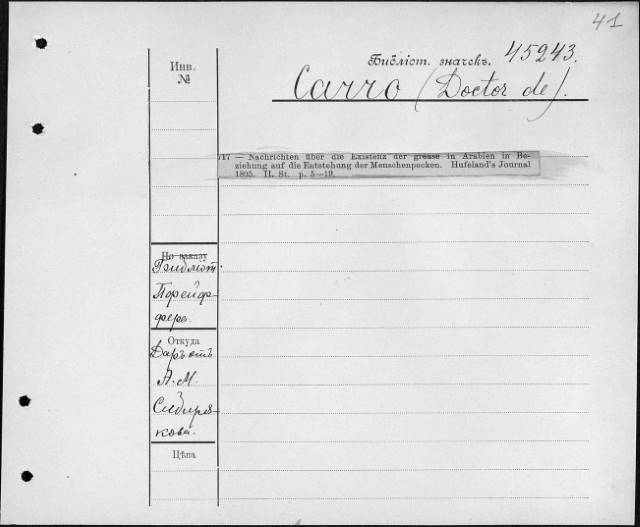 41
Библіот. значекъ. 45243.
Инв.
№
Carro (Doctor de).
717 — Nachrichten über die Existenz der grease in Arabien in Be-
ziehung auf die Entstehung der Menschenpocken. Hufeland's Journal
1805. II. St. p. 5—19.
По заказу
Библіот.
Порейф-
фера.
Откуда
Даръ отъ
А. М.
Сибиря-
кова.
Цѣна